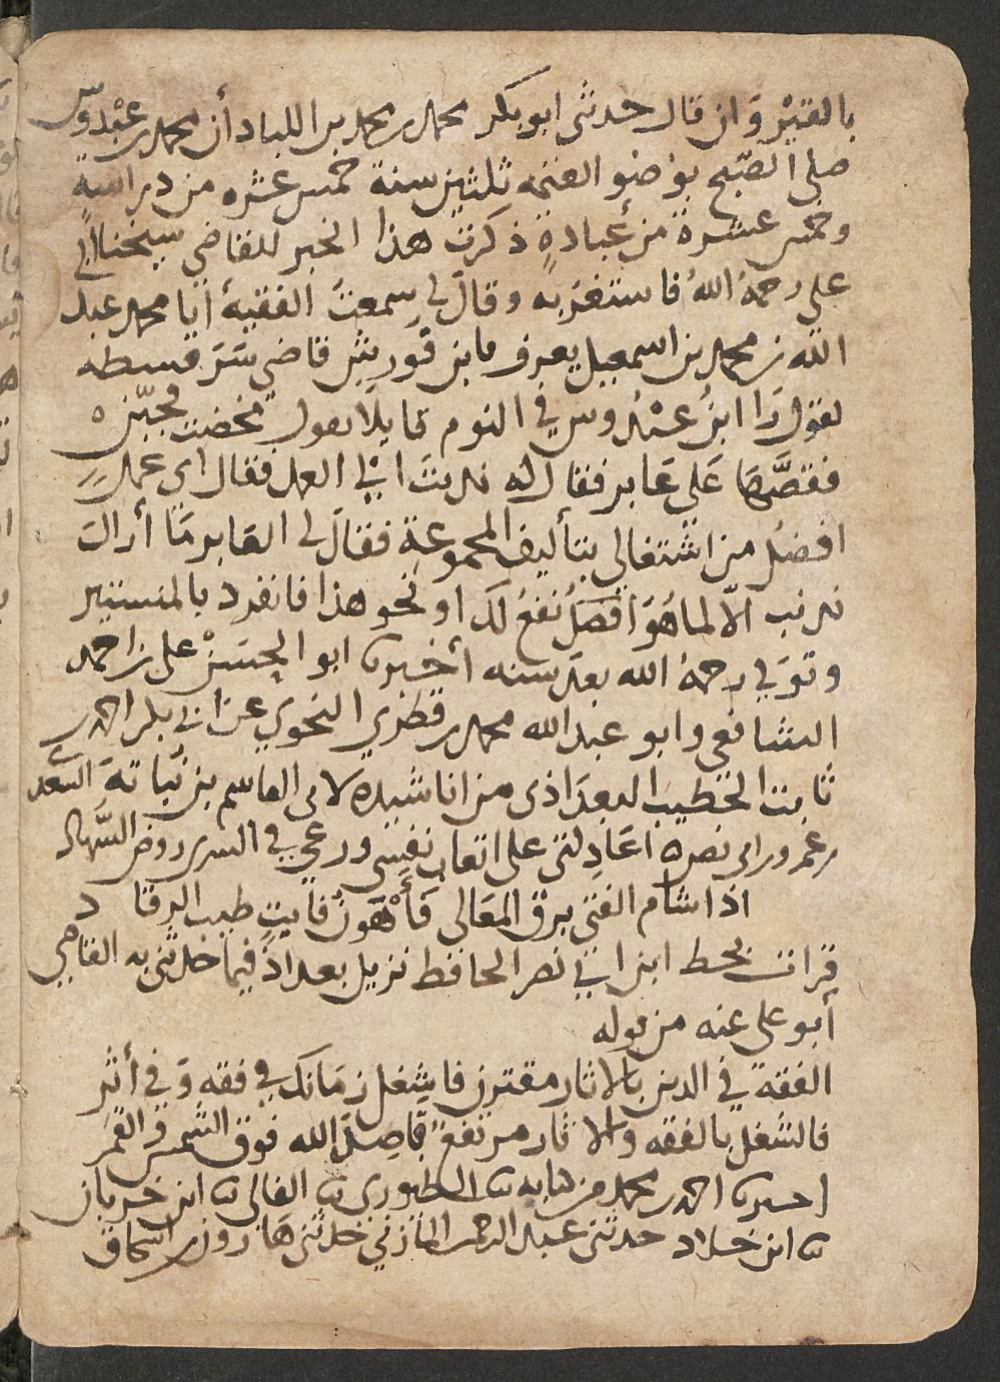 بالقيْروَان قال حدثني ابو بكر محمد بن محمد بن اللباد أن محمد بن عبْدوُس
صلى الصّبح بوُضوُ العتمه ثلثين سنة خمس عشره من دراسةٍ
وخمس عشرة من عُبادةٍ ذكرت هذا الخبر للقاضي شيخنا ابي
علي رحمهُ اللهُ فاستغربه وقال لي سمعتُ الفقيهُ أبا محمد عبد
الله بن محمد بن اسمعيل يعرف بابن فورتش قاضي سَرَقسطه
يقول رَا ابنُ عبْدوس في النوم قايلًا يقول مخضت مجبّن ه
فقصَّهَا عَلى عَابر فقال له ندبتَ الي العمل فقال اي عمل
افضل من اشتغالي بتأليف المجموعة فقالَ لي العَابر مَا أراك
ندبت الّا لما هُوَ أفضَلُ نفعُ لك او نحو هذا فانفرد بالمنستير
وتوَفي رحمهُ الله بعد سنه أخبرنا ابو الحسَنْ علي بن احمد
الشافعي وابو عبد الله محمد بن قطري النحوي عن ابي بكر احمد بن
ثابت الخطيب البغدَاذي من اناشيده لابي القاسم بن نُباتةَ السَّعْدي
بن عمر وراي نصره اعَاذِلتي على اتعاب نفسي ورعيي في السرى روض السُّهاد
اذا شام الفتى برق المعَالي فأهْوَنُ فايتٍ طيب الرقاد
قرات بخط ابن ابي نصر الحافظ نزيل بغداذ فيما حدثني به القاضي
أبو علي عنه من قوله
الفقهُ في الدين بالاثار مقترن فاشغل زمَانك في فقه وَفي أثَرِ
فالشغل بالفقه والاثار مرتفعٌ بقَاصِدِ الله فوق الشمسِ والقمَر
اخبرنا احمد بن محمد من كتابه نا الطيوري نا الفالي نا ابن خربان
نا ابن خلاد حدثني عبد الرحمن المازني حدثني هَارون بن اسحاق